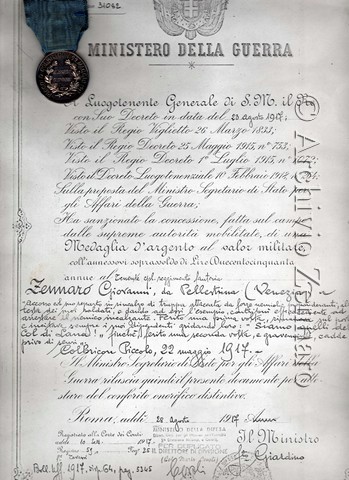 N. 31062
MINISTERO DELLA GUERRA
Il Luogotenente Generale di S. M. il Re
con Suo Decreto in data del 23 agosto 1917
Visto il Regio Viglietto 26 Marzo 1833;
Visto il Regio Decreto 25 Maggio 1915, n° 753;
Visto il Regio Decreto 1° Luglio 1915, n°
Visto il Decreto Luogotenenziale 10 Febbraio
Sulla proposta del Ministro Segretario di Stato per
gli Affari della Guerra;
Ha sanzionato la concessione, fatta sul campo
dalle supreme autorità mobilitate, di una
Medaglia d'argento al valor militare,
coll'annesso soprassoldo di Lire Duecentocinquanta
annue al reggimento fanteria
Zennaro Giovanni, da Pellestrina (Venezia)
Accorso col suo reparto in rincalzo di truppe attaccate da forze nemiche alla
testa dei suoi soldati,
sempre i suoi dipendenti gridando loro: "Siamo quelli del
Col di Lana!", ferito una seconda volta, e gravemente, cadde
privo di sensi.
Colbricon Piccolo, 22 maggio 1917.
Il Ministro Segretario di Stato per gli Affari della
Guerra rilascia quindi il presente documento per atte-
stare del conferito onorifico distintivo.
Roma, addì 28 agosto 1917 Anno
Registrato alla Corte dei Conti
addì 1917
Registro 59 Fog°
PER COPIA CONFORME
IL DIRETTORE DI DIVISIONE
Il Ministro
f° Giardino
Boll. Uff. 1917, disp. 64, pag. 5265
© Archivio